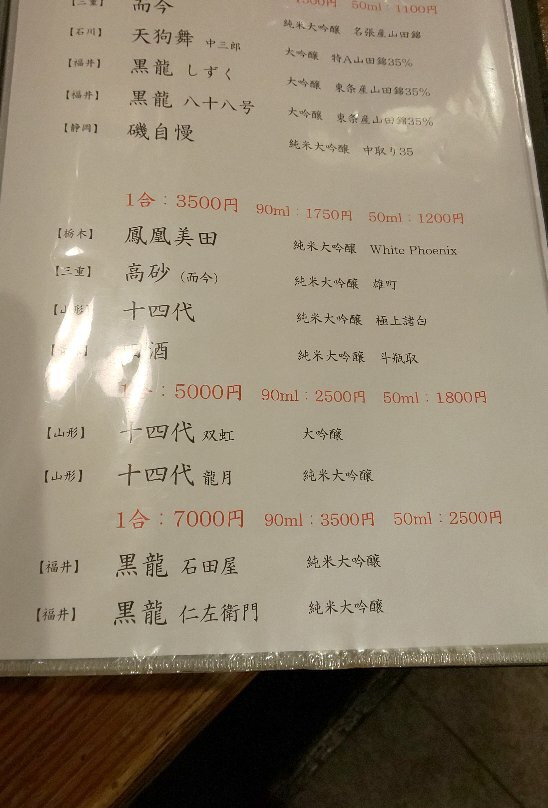 【三重】 而今 純米大吟醸 名張産山田錦
50ml：1100円
【石川】 天狗舞 中三郎 大吟醸 特A山田錦35%
【福井】 黒龍 しずく 大吟醸 東条産山田錦35%
【福井】 黒龍 八十八号 大吟醸 東条産山田錦35%
【静岡】 磯自慢 純米大吟醸 中取り35
1合：3500円 90ml：1750円 50ml：1200円
【栃木】 鳳凰美田 純米大吟醸 White Phoenix
【三重】 高砂（而今） 純米大吟醸 雄町
【山形】 十四代 純米大吟醸 極上諸白
酒 純米大吟醸 斗瓶取
1合：5000円 90ml：2500円 50ml：1800円
【山形】 十四代 双虹 大吟醸
【山形】 十四代 龍月 純米大吟醸
1合：7000円 90ml：3500円 50ml：2500円
【福井】 黒龍 石田屋 純米大吟醸
【福井】 黒龍 仁左衛門 純米大吟醸